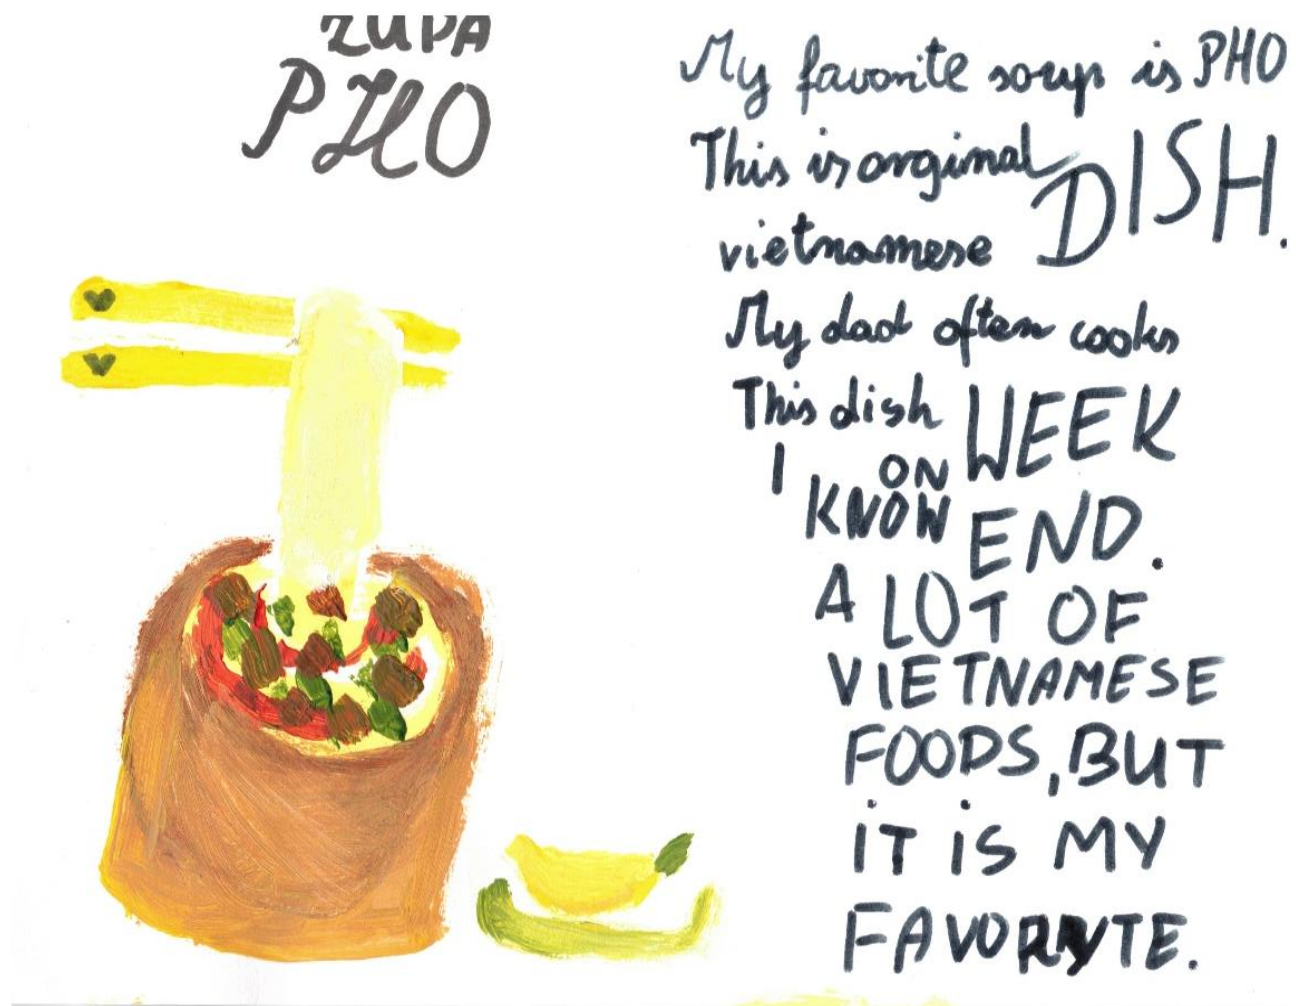 ZUPA
PHO
My favorite soup is PHO
This is orginal DISH.
vietnamese
My dad often cooks
This dish WEEK
I ON
KNOW END.
A LOT OF
VIETNAMESE
FOODS, BUT
iT iS MY
FAVORYTE.